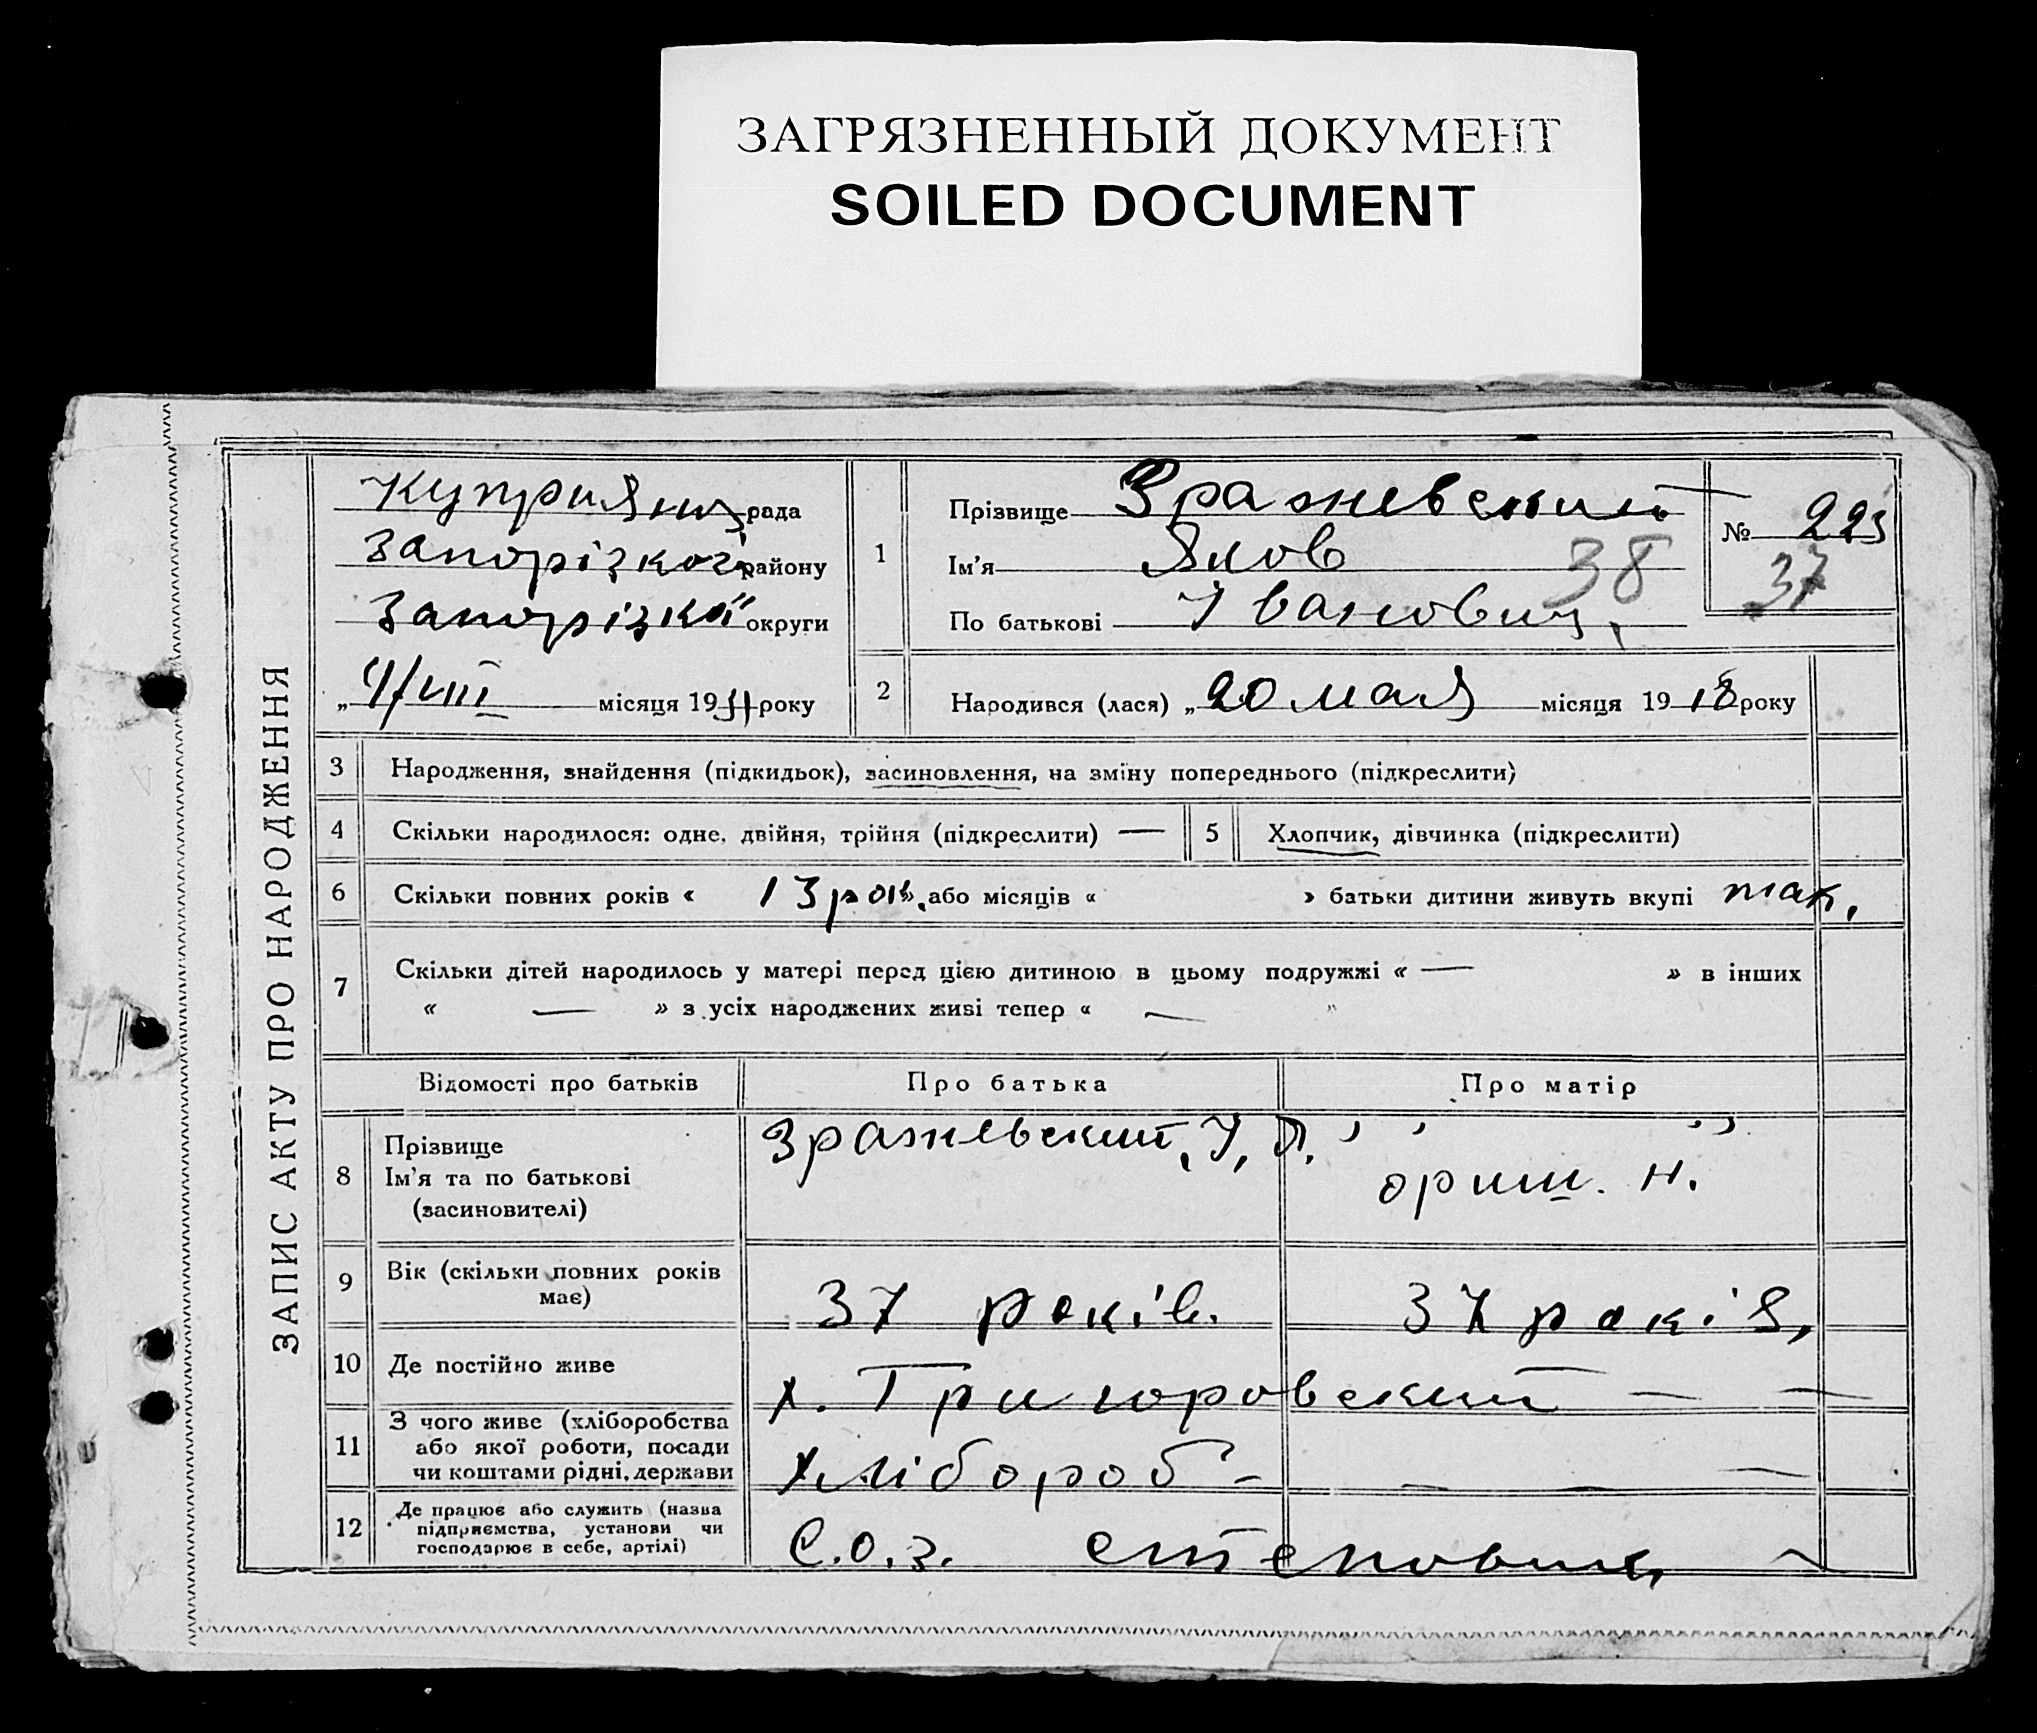 ЗАГРЯЗНЕННЫЙ ДОКУМЕНТ
SOILED DOCUMENT
ЗАПИС АКТУ ПРО НАРОДЖЕННЯ
рада
Запорізкого району
Запорізкої округи
місяця 19 31 року
1
Прізвище Зражевский
Ім'я Яков
По батькові Иванович
38
№ 223
37
2
Народився (лася) „20 мая місяця 19 18 року
3 Народження, знайдення (підкидьок), засиновлення, на зміну попереднього (підкреслити)
4 Скільки народилося: одне, двійня, трійня (підкреслити) —
5 Хлопчик, дівчинка (підкреслити)
6 Скільки повних років « 13 рок. або місяців « » батьки дитини живуть вкупі так.
7 Скільки дітей народилось у матері перед цією дитиною в цьому подружжі « — » в інших
« — » з усіх народжених живі тепер « — "
Відомості про батьків
Про батька
Про матір
8
Прізвище
Ім'я та по батькові
(засиновителі)
Зражевский, И. П.
" "
ориш. н.
9
Вік (скільки повних років
має)
37 років.
37 років,
10 Де постійно живе
х. Григоровский — —
11
З чого живе (хліборобства
або якої роботи, посади
чи коштами рідні, держави
хлібороб — — — —
12
Де працює або служить (назва
підприємства, установи чи
господарює в себе, артілі)
С.о.з.